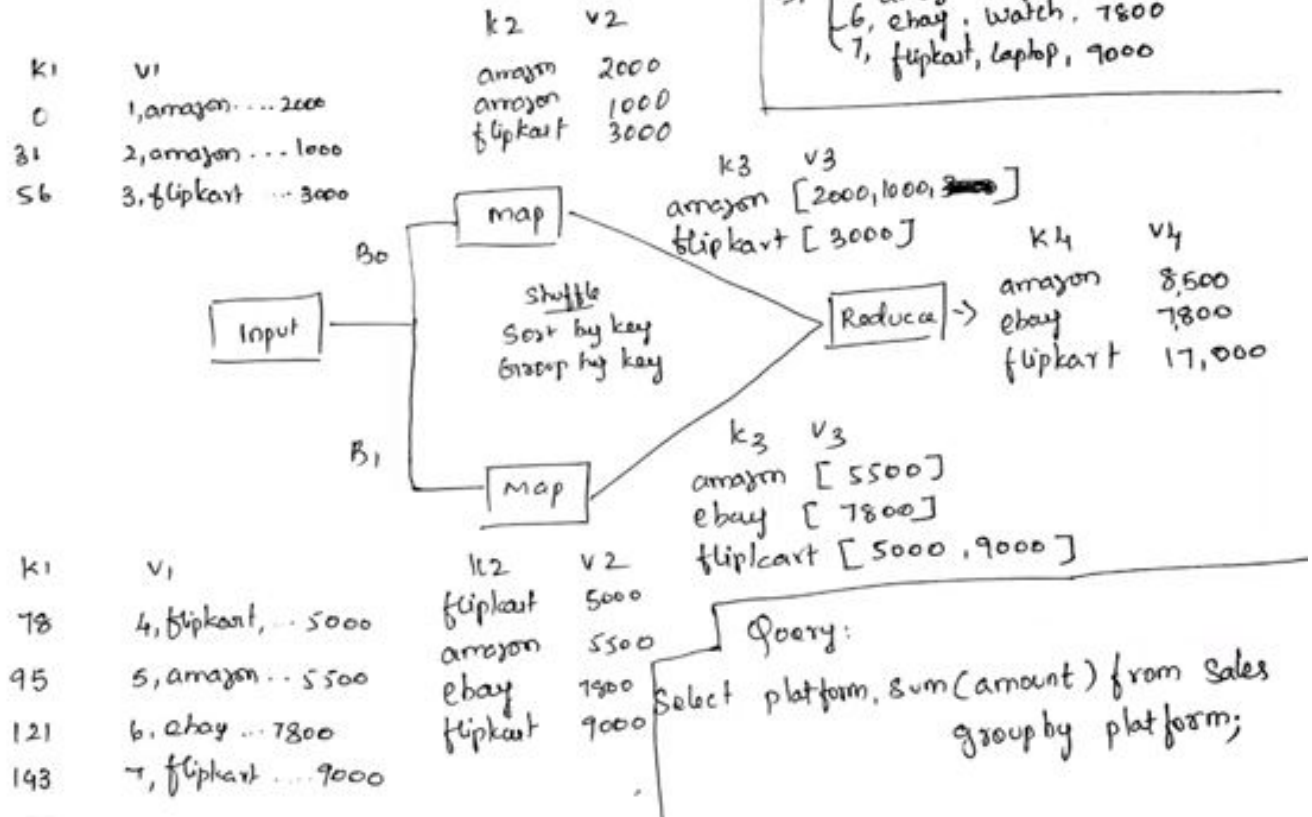 6, ebay, watch, 7800
7, flipkart, laptop, 9000
K1 V1
0 1,amazon....2000
31 2,amazon...1000
56 3,flipkart ...3000
k2 v2
amazon 2000
amazon 1000
flipkart 3000
B0
map
k3 v3
amazon [2000,1000, ]
flipkart [3000]
Input
Shuffle
Sort by key
Group by key
Reduce ->
K4 V4
amazon 8,500
ebay 7,800
flipkart 17,000
B1
Map
k3 V3
amazon [5500]
ebay [7800]
flipkart [5000,9000]
K1 V1
78 4,flipkart,...5000
95 5,amazon..5500
121 6.ebay...7800
143 7,flipkart....9000
k2 v2
flipkart 5000
amazon 5500
ebay 7800
flipkart 9000
Query:
Select platform, sum(amount) from Sales
groupby platform;